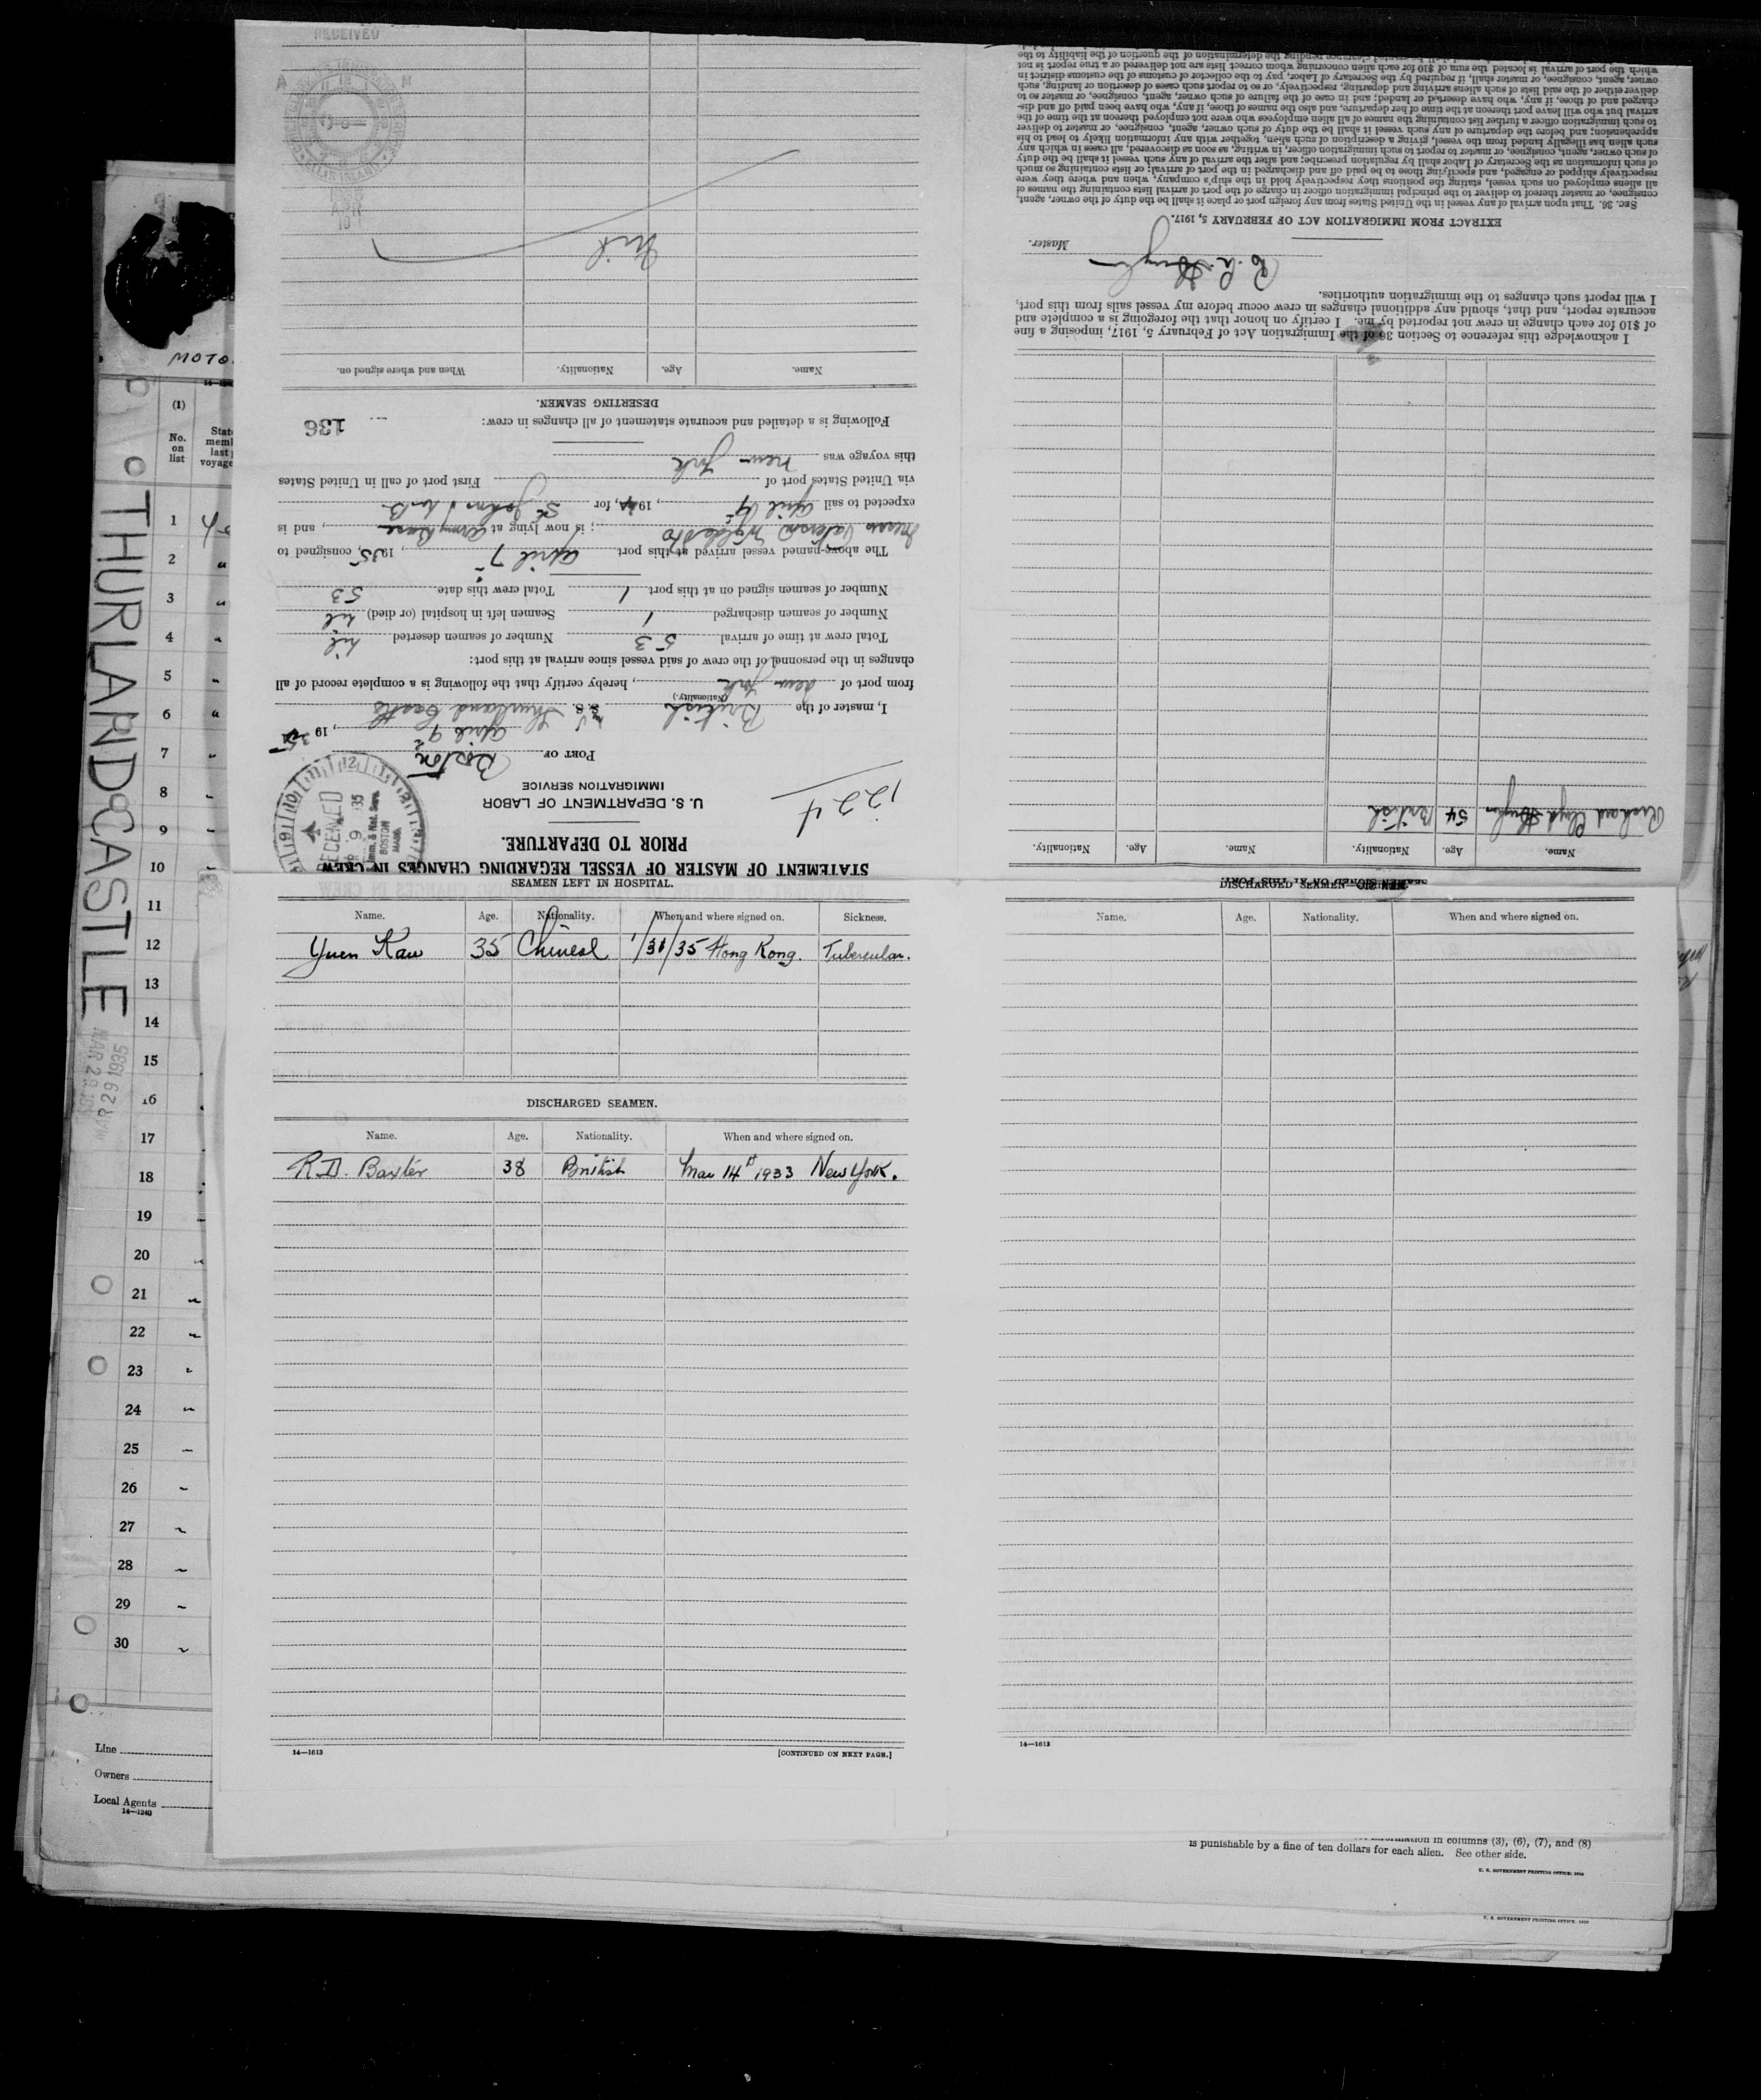 THURLAND CASTLE
MAR 29 1935
MOTO
(1)
No. on list
1
2
3
4
5
6
7
8
9
10
11
12
13
14
15
16
17
18
19
20
21
22
23
24
25
26
27
28
29
30
Line
Owners
Local Agents
14—1240
STATEMENT OF MASTER OF VESSEL REGARDING CHANGES IN CREW
PRIOR TO DEPARTURE.
U. S. DEPARTMENT OF LABOR
IMMIGRATION SERVICE
1224
RECEIVED
9
35
Imm. & Nat. Serv.
BOSTON
MASS.
PORT OF Boston
April 9, 1935
I, master of the British S. S. Thurland Castle
(Nationality.)
from port of New York, hereby certify that the following is a complete record of all
changes in the personnel of the crew of said vessel since arrival at this port:
Total crew at time of arrival 53 Number of seamen deserted nil
Number of seamen discharged 1 Seamen left in hospital (or died) nil
Number of seamen signed on at this port 1 Total crew this date. 53
The above-named vessel arrived at this port April 7, 1935, consigned to
; is now lying at Army Base, and is
expected to sail April 9, 19, for St John N.B.
via United States port of First port of call in United States
this voyage was New York
Following is a detailed and accurate statement of all changes in crew:
136
DESERTING SEAMEN.
Name. Age. Nationality. When and where signed on.
Nil
RECEIVED
ELLIS ISLAND
APR
10
SEAMEN LEFT IN HOSPITAL.
Name. Age. Nationality. When and where signed on. Sickness.
Yuen Kau 35 Chinese 1/31/35 Hong Kong. Tubercular.
DISCHARGED SEAMEN.
Name. Age. Nationality. When and where signed on.
R.D. Baxter 38 British Mar 14th 1933 New York.
14—1613 [CONTINUED ON NEXT PAGE.]
SEAMEN SIGNED ON AT THIS PORT.
Name. Age. Nationality. Name. Age. Nationality.
Richard Lloyd 54 British
I acknowledge this reference to Section 36 of the Immigration Act of February 5, 1917, imposing a fine
of $10 for each change in crew not reported by me. I certify on honor that the foregoing is a complete and
accurate report, and that, should any additional changes in crew occur before my vessel sails from this port,
I will report such changes to the immigration authorities.
Master.
EXTRACT FROM IMMIGRATION ACT OF FEBRUARY 5, 1917.
SEC. 36. That upon arrival of any vessel in the United States from any foreign port or place it shall be the duty of the owner, agent,
consignee, or master thereof to deliver to the principal immigration officer in charge of the port of arrival lists containing the names of
all aliens employed on such vessel, stating the positions they respectively hold in the ship's company, when and where they were
respectively shipped or engaged, and specifying those to be paid off and discharged in the port of arrival; or lists containing so much
of such information as the Secretary of Labor shall by regulation prescribe; and after the arrival of any such vessel it shall be the duty
of such owner, agent, consignee, or master to report to such immigration officer, in writing, as soon as discovered, all cases in which any
such alien has illegally landed from the vessel, giving a description of such alien, together with any information likely to lead to his
apprehension; and before the departure of any such vessel it shall be the duty of such owner, agent, consignee, or master to deliver
to such immigration officer a further list containing the names of all alien employees who were not employed thereon at the time of the
arrival but who will leave port thereon at the time of her departure, and also the names of those, if any, who have been paid off and dis-
charged and of those, if any, who have deserted or landed; and in case of the failure of such owner, agent, consignee, or master so to
deliver either of the said lists of such aliens arriving and departing, respectively, or so to report such cases of desertion or landing, such
owner, agent, consignee, or master shall, if required by the Secretary of Labor, pay to the collector of customs of the customs district in
which the port of arrival is located the sum of $10 for each alien concerning whom correct lists are not delivered or a true report is not
pending the determination of the question of the liability to the
DISCHARGED SEAMEN
Name. Age. Nationality. When and where signed on.
14—1613
information in columns (3), (6), (7), and (8)
is punishable by a fine of ten dollars for each alien. See other side.
U. S. GOVERNMENT PRINTING OFFICE
U. S. GOVERNMENT PRINTING OFFICE